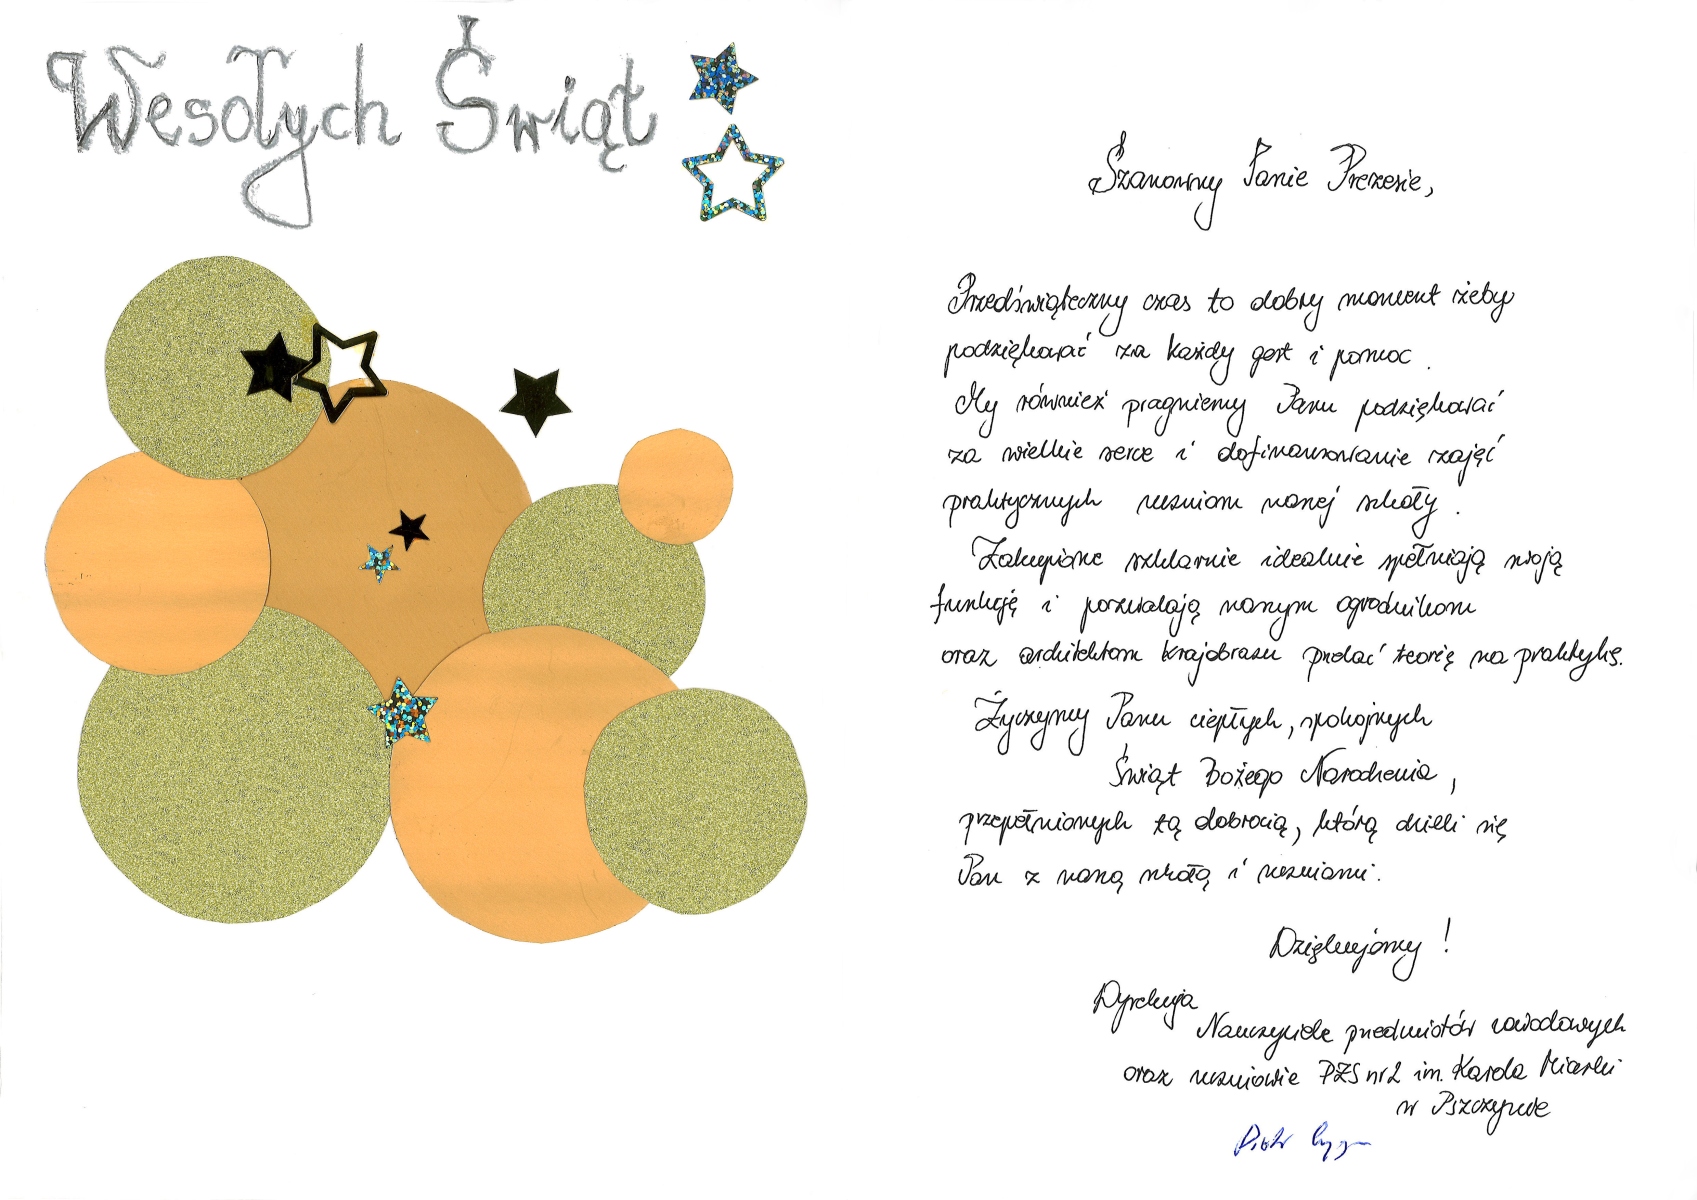 Wesołych Świąt
Szanowny Panie Prezesie,
Przedświąteczny czas to dobry moment żeby
podziękować za każdy gest i pomoc.
My również pragniemy Panu podziękować
za wielkie serce i dofinansowanie zajęć
praktycznych uczniom naszej szkoły.
Zakupione szklarnie idealnie spełniają swoją
funkcję i pozwalają naszym ogrodnikom
oraz architektom krajobrazu przelać teorię na praktykę.
Życzymy Panu ciepłych, spokojnych
Świąt Bożego Narodzenia,
przepełnionych tą dobrocią, którą dzieli się
Pan z naszą szkołą i uczniami.
Dziękujemy!
Dyrekcja
Nauczyciele przedmiotów zawodowych
oraz uczniowie PZS nr 2 im. Karola Miarki
w Pszczynie
Piotr